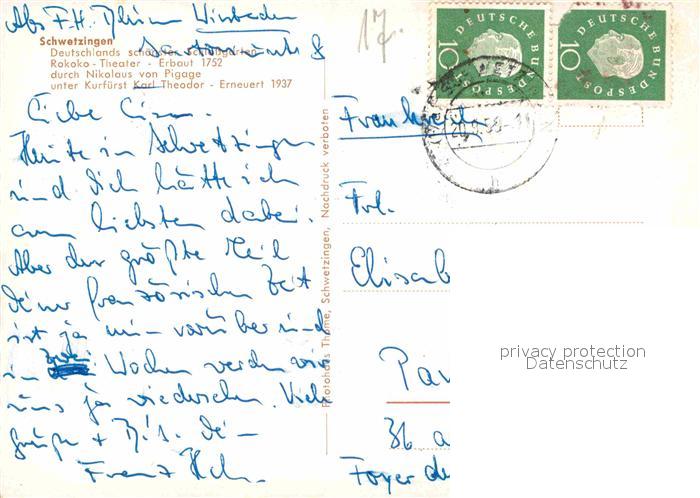 Abs F.H.
Schwetzingen
Deutschlands schönster
Rokoko-Theater - Erbaut 1752
durch Nikolaus von Pigage
unter Kurfürst Karl Theodor - Erneuert 1937
17.
DEUTSCHE BUNDESPOST
10
DEUTSCHE BUNDESPOST
10
Heute in Schwetzingen
und Dich hätte ich
am liebsten dabei.
Aber der größte Teil
Deiner französischen Zeit
ist ja nun vorüber und
in zwei Wochen werden wir
uns ja wiedersehen. Viele
Grüße +
Franz
Photohaus Thome, Schwetzingen, Nachdruck verboten
Frankreich
Frl.
Elisab
Par
36, a
Foyer de
privacy protection
Datenschutz